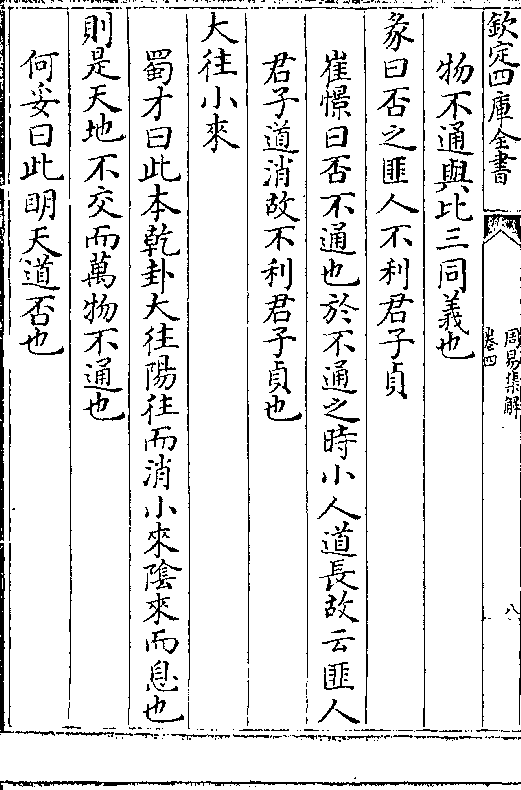 欽定四庫全書
周易集解
卷四
八
物不通與比三同義也
彖曰否之匪人不利君子貞
崔憬曰否不通也於不通之時小人道長故云匪人
君子道消故不利君子貞也
大往小來
蜀才曰此本乾卦大往陽往而消小來陰來而息也
則是天地不交而萬物不通也
何妥曰此明天道否也